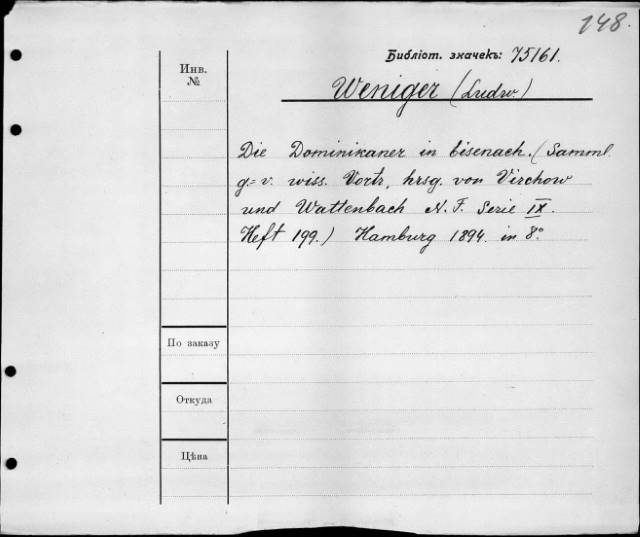 148.
Библіот. значекъ: 75161.
Инв.
№
Weniger (Ludw.)
Die Dominikaner in Eisenach. (Samml.
g.=v. wiss. Vortr., hrsg. von Virchow
und Wattenbach N. F. Serie IX.
Heft 199.) Hamburg 1894. in 8º.
По заказу
Откуда
Цѣна